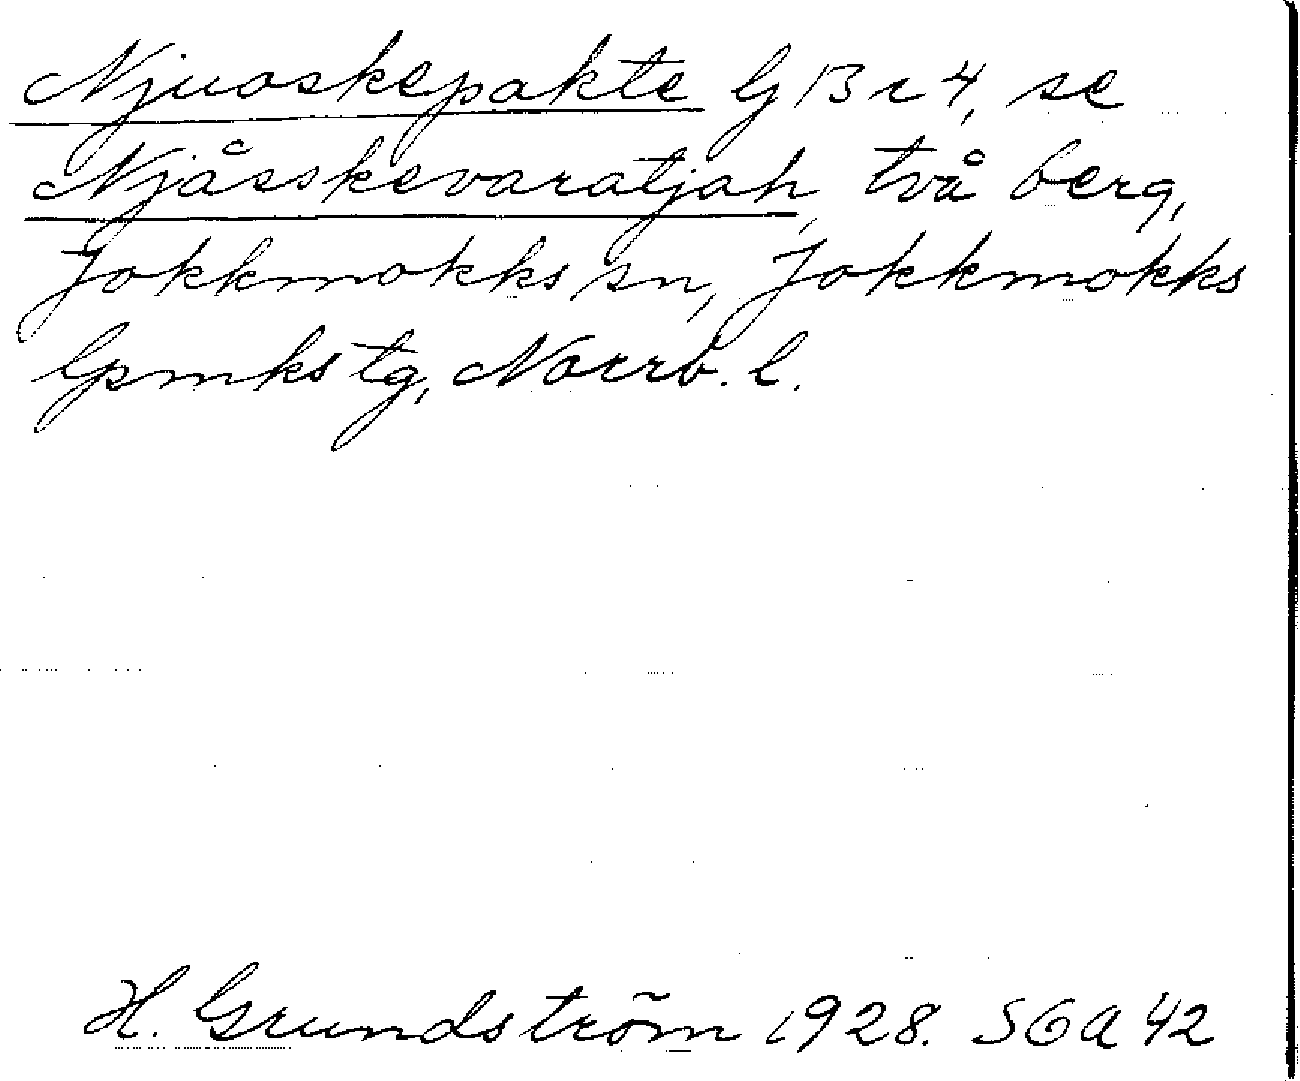 Njuoskepakte G 13 r 4, se
Njåsskevaratjah, två berg,
Jokkmokks sn, Jokkmokks
lpmks tg, Norrb. l.
H. Grundström 1928. SGA 42